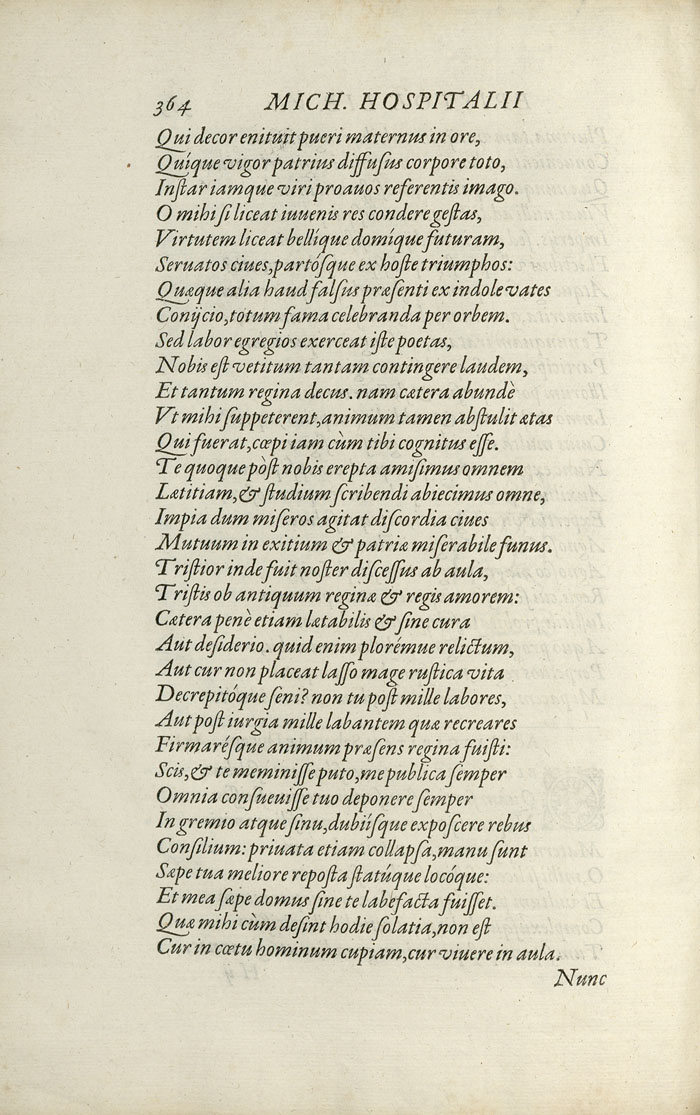 364 MICH. HOSPITALII
Qui decor enituit pueri maternus in ore,
Quíque vigor patrius diffuſus corpore toto,
Inſtar iamque viri proauos referentis imago.
O mihi ſi liceat iuuenis res condere geſtas,
Virtutem liceat bellíque domíque futuram,
Seruatos ciues,partóſque ex hoſte triumphos:
Quæque alia haud falſus præſenti ex indole vates
Conijcio,totum fama celebranda per orbem.
Sed labor egregios exerceat iſte poetas,
Nobis eſt vetitum tantam contingere laudem,
Et tantum regina decus. nam cætera abundè
Vt mihi ſuppeterent,animum tamen abſtulit ætas
Qui fuerat,cœpi iam cùm tibi cognitus eſſe.
Te quoque pòſt nobis erepta amiſimus omnem
Lætitiam,& ſtudium ſcribendi abiecimus omne,
Impia dum miſeros agitat diſcordia ciues
Mutuum in exitium & patriæ miſerabile funus.
Triſtior inde fuit noſter diſceſſus ab aula,
Triſtis ob antiquum reginæ & regis amorem:
Cætera penè etiam lætabilis & ſine cura
Aut deſiderio. quid enim plorémue relictum,
Aut cur non placeat laſſo mage ruſtica vita
Decrepitóque ſeni? non tu poſt mille labores,
Aut poſt iurgia mille labantem quæ recreares
Firmaréſque animum præſens regina fuiſti:
Scis,& te meminiſſe puto,me publica ſemper
Omnia conſueuiſſe tuo deponere ſemper
In gremio atque ſinu,dubiíſque expoſcere rebus
Conſilium: priuata etiam collapſa,manu ſunt
Sæpe tua meliore repoſta ſtatúque locóque:
Et mea ſæpe domus ſine te labefacta fuiſſet.
Quæ mihi cùm deſint hodie ſolatia,non eſt
Cur in cœtu hominum cupiam,cur viuere in aula.
Nunc